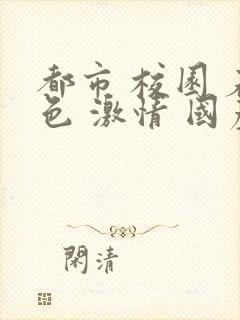 都市 校園 
色 激情 國
閑清